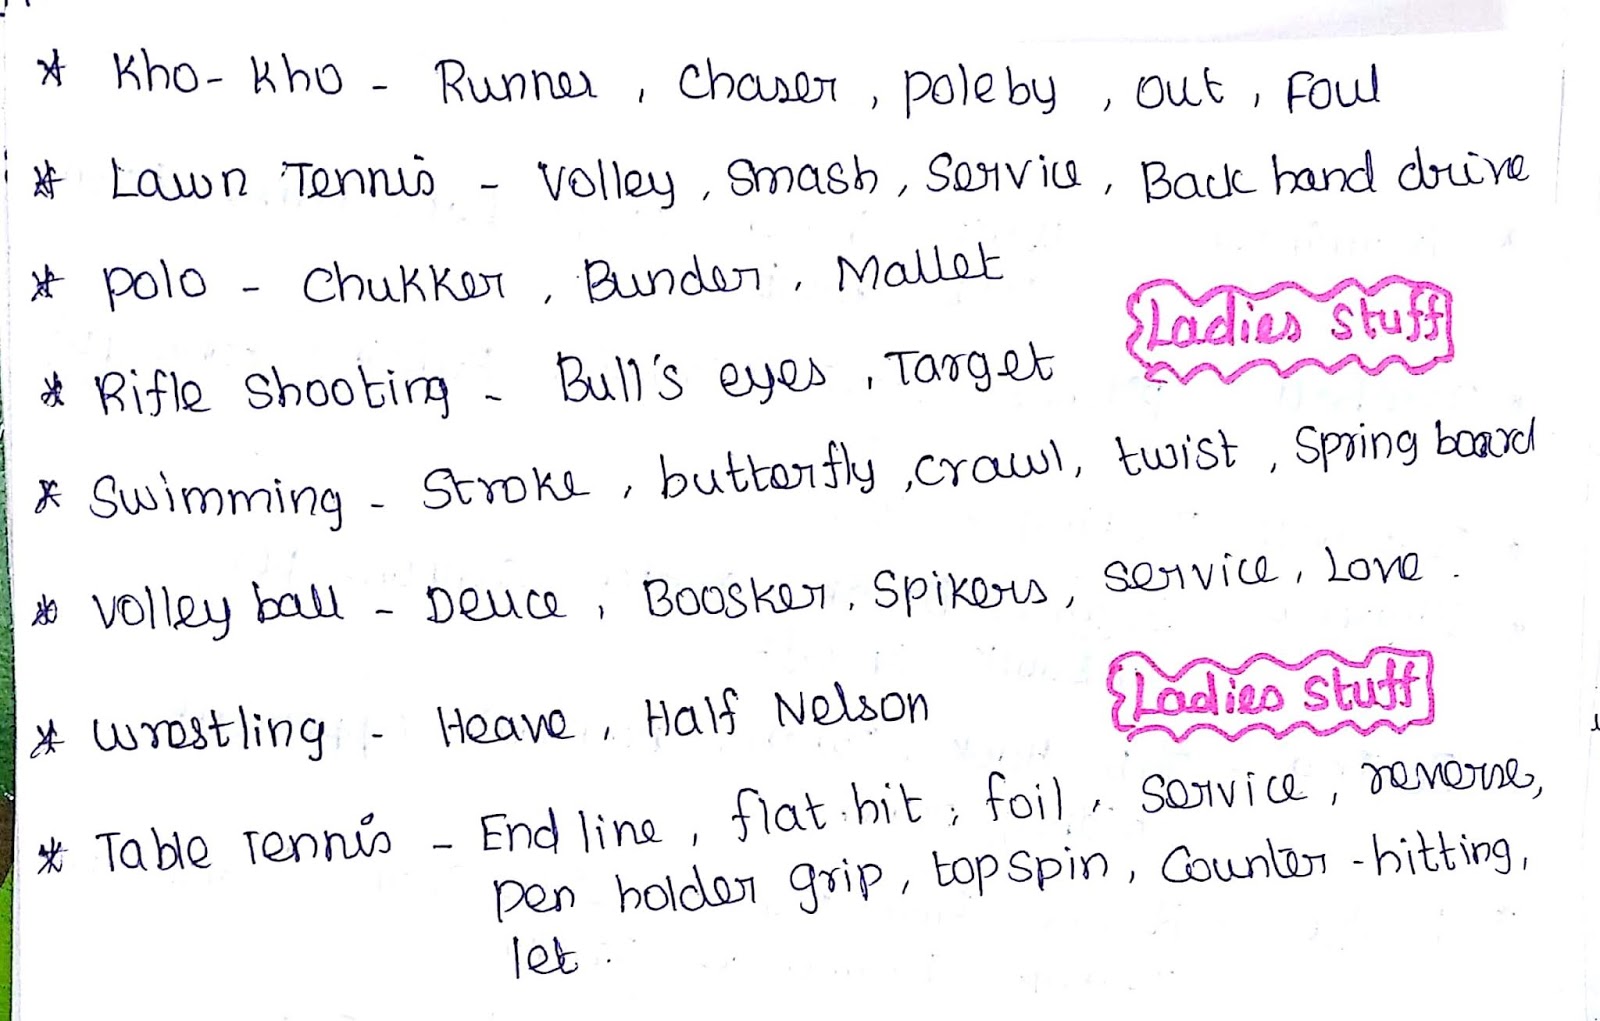 * Kho-Kho - Runner, Chaser, poleby, out, Foul
* Lawn Tennis - Volley, Smash, Service, Back hand drive
* Polo - Chukker, Bunder, Mallet
Ladies Stuff
* Rifle Shooting - Bull's eyes, Target
* Swimming - Stroke, butterfly, crawl, twist, Spring board
* Volley ball - Deuce, Boosker, Spikers, service, Love.
* Wrestling - Heave, Half Nelson
Ladies Stuff
* Table Tennis - End line, flat hit, foil, Service, reverse,
pen holder grip, topspin, Counter-hitting,
let.